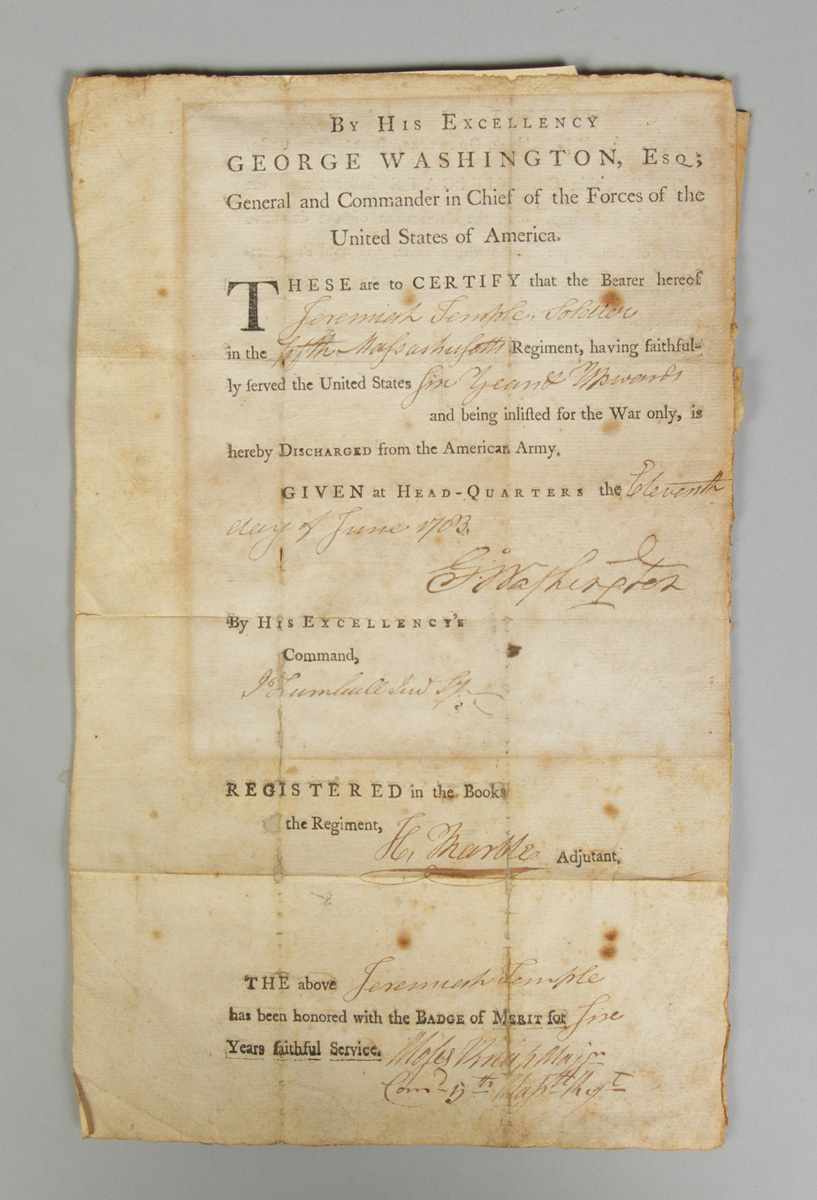 BY HIS EXCELLENCY
GEORGE WASHINGTON, ESQ;
General and Commander in Chief of the Forces of the
United States of America.
THESE are to CERTIFY that the Bearer hereof
Jeremiah Temple, Soldier
in the Massachusetts Regiment, having faithful-
ly served the United States Years & Upwards
and being inlisted for the War only, is
hereby DISCHARGED from the American Army.
GIVEN at HEAD-QUARTERS the Eleventh
day of June 1783.
G:Washington
By HIS EXCELLENCY'S
Command,
J Trumbull Jun Sy
REGISTERED in the Books
the Regiment,
H, Marble Adjutant,
THE above Jeremiah Temple
has been honored with the BADGE of MERIT for
Years faithful Service. Moses Knap Major
Comd 5th Massts Regt